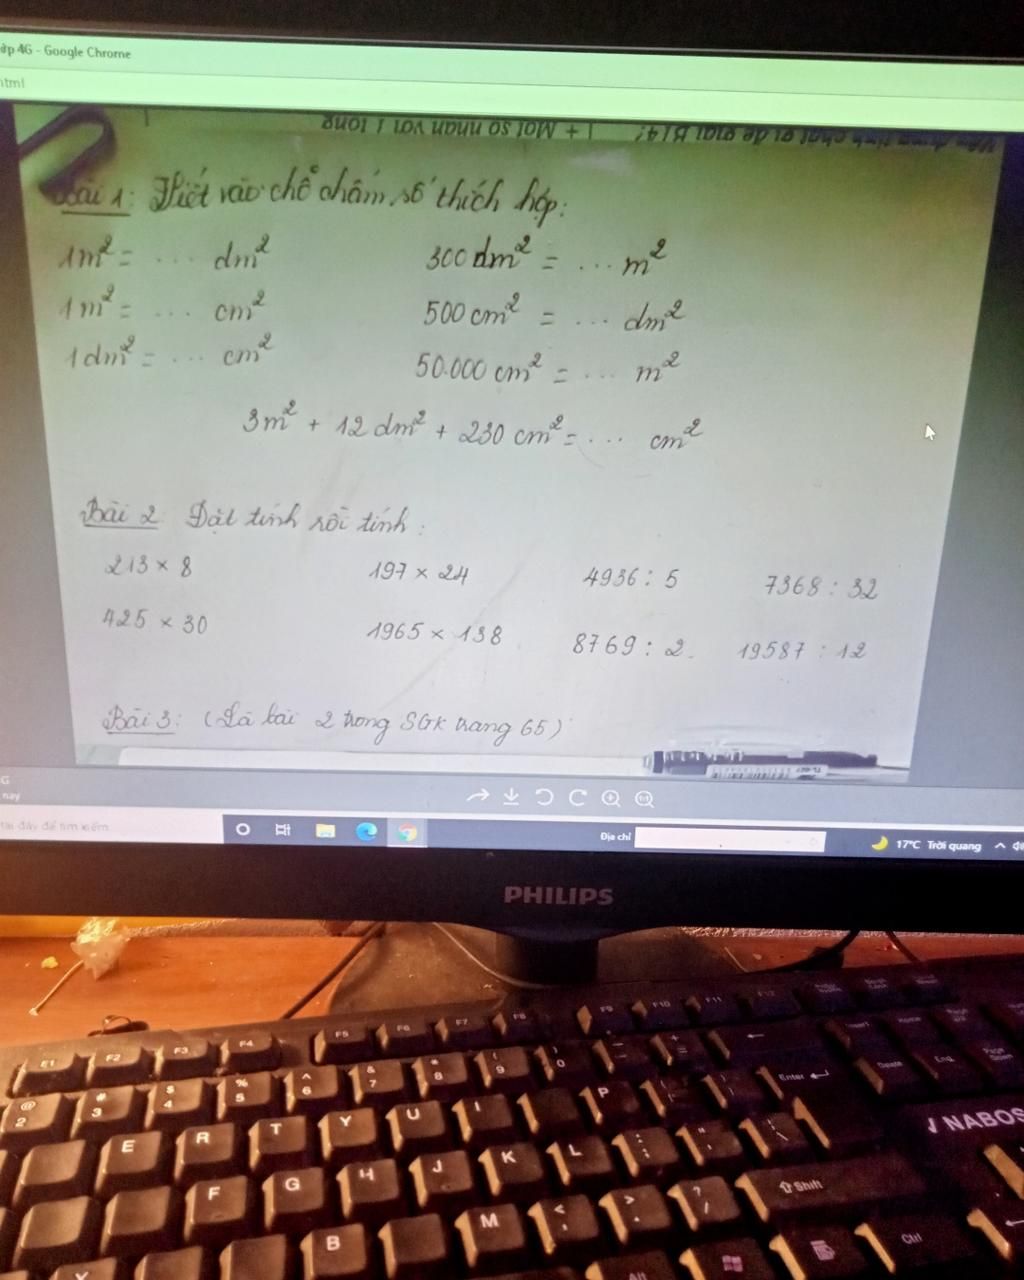 ớp 4G - Google Chrome
html
1 + Một số nhân với 1 tổng
Bài 1: Viết vào chỗ chấm, số thích hợp:
1m² = ... dm² 300 dm² = ... m²
1m² = ... cm² 500 cm² = ... dm²
1dm² = ... cm² 50.000 cm² = ... m²
3m² + 12 dm² + 230 cm² = ... cm²
Bài 2 Đặt tính rồi tính:
213 × 8 197 × 24 4936 : 5 7368 : 32
425 × 30 1965 × 138 8769 : 2 19587 : 12
Bài 3: (Là bài 2 trong SGK trang 65)
G
này
tại đây để tìm kiếm Địa chỉ 17°C Trời quang
PHILIPS
F1 F2 F3 F4 F5 F6 F7 F8 F9 F10 F11 F12
@ 2 # 3 $ 4 % 5 ^ 6 & 7 * 8 ( 9 ) 0 Enter
E R T Y U I P
NABOS
F G H J K L : ; Shift
B M < , > . ? / Ctrl
Alt